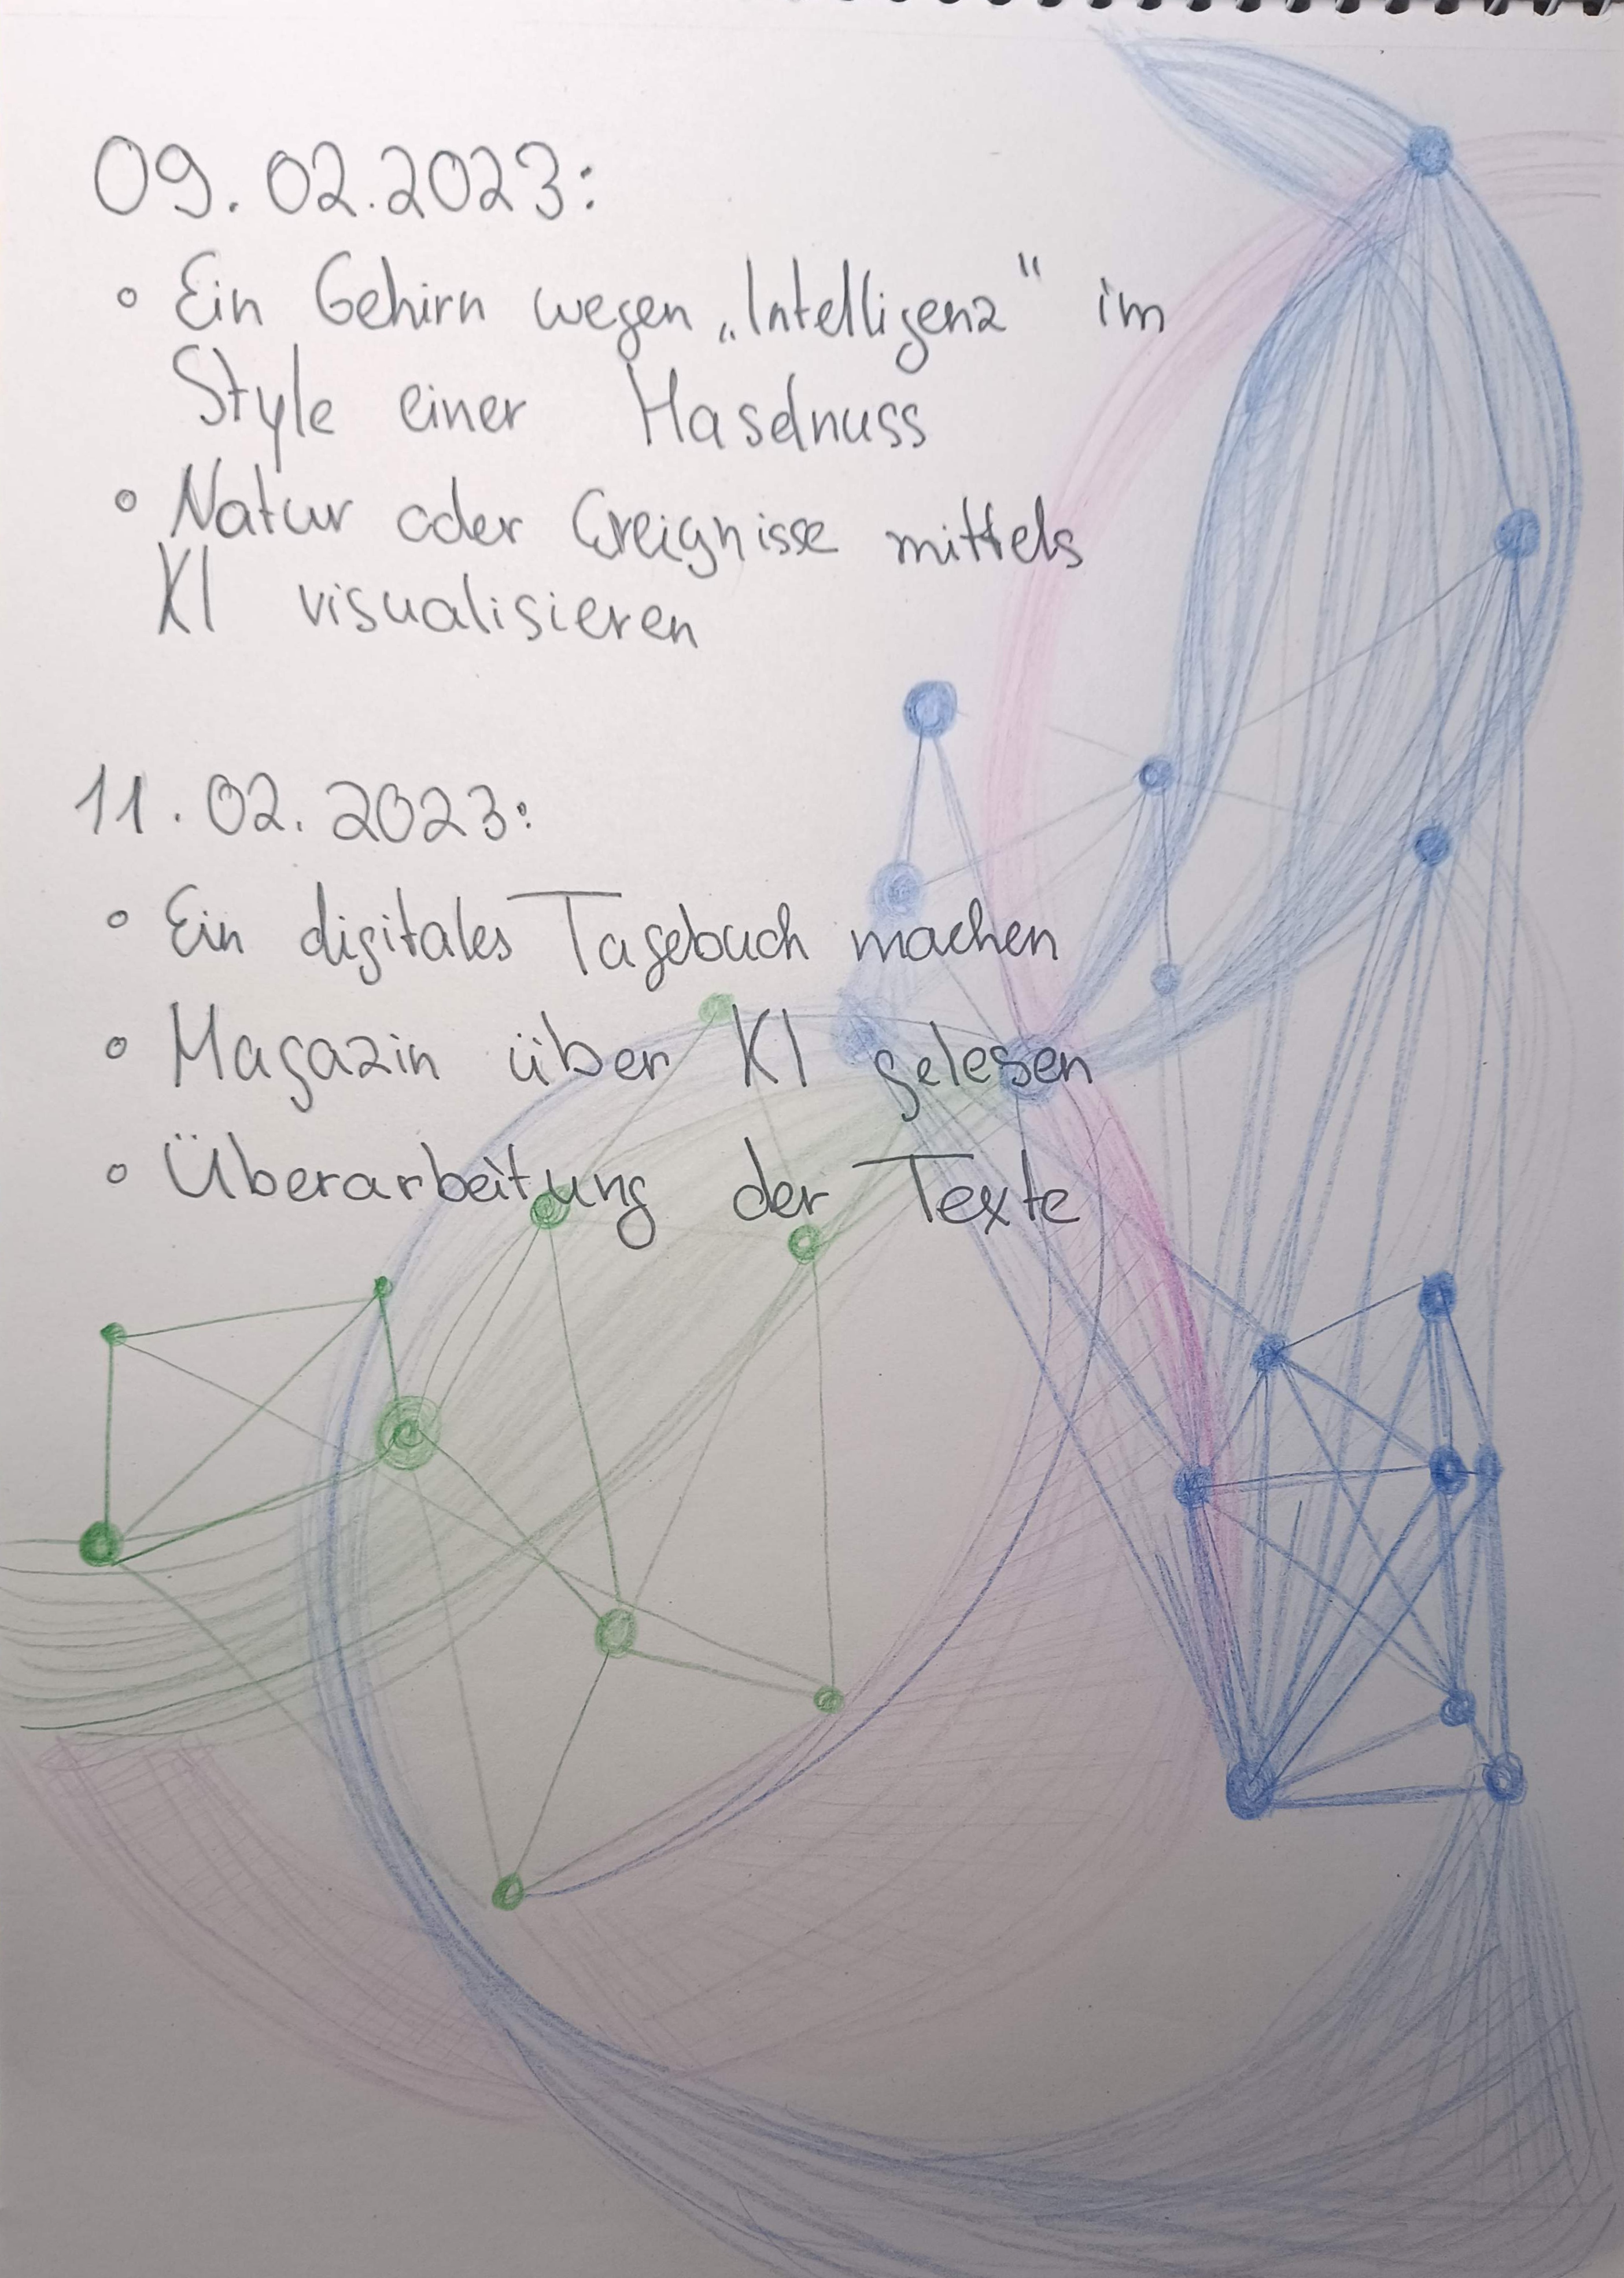 09.02.2023:
• Ein Gehirn wegen „Intelligenz“ im
Style einer Haselnuss
• Natur oder Ereignisse mittels
KI visualisieren
11.02.2023:
• Ein digitales Tagebuch machen
• Magazin über KI gelesen
• Überarbeitung der Texte